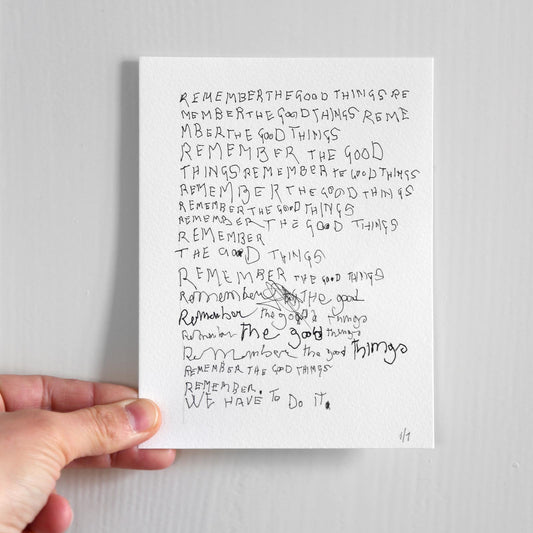 REMEMBERTHEGOOD THINGS RE
MEMBERTHEGOODTHINGS REME
MBERTHE GOOD THINGS
REMEMBER THE GOOD
THINGS REMEMBER TE GOOD THINGS
REMEMBER THE GOOD THINGS
REMEMBER THE GOOD THINGS
REMEMBER THE GOOD THINGS
REMEMBER
THE GOOD THINGS
REMEMBER THE GOOD THINGS
Remember the good
Remember the good things
Remember the good things
Remember the good things
REMEMBER THE GOOD THINGS
REMEMBER.
WE HAVE TO DO IT.
1/1